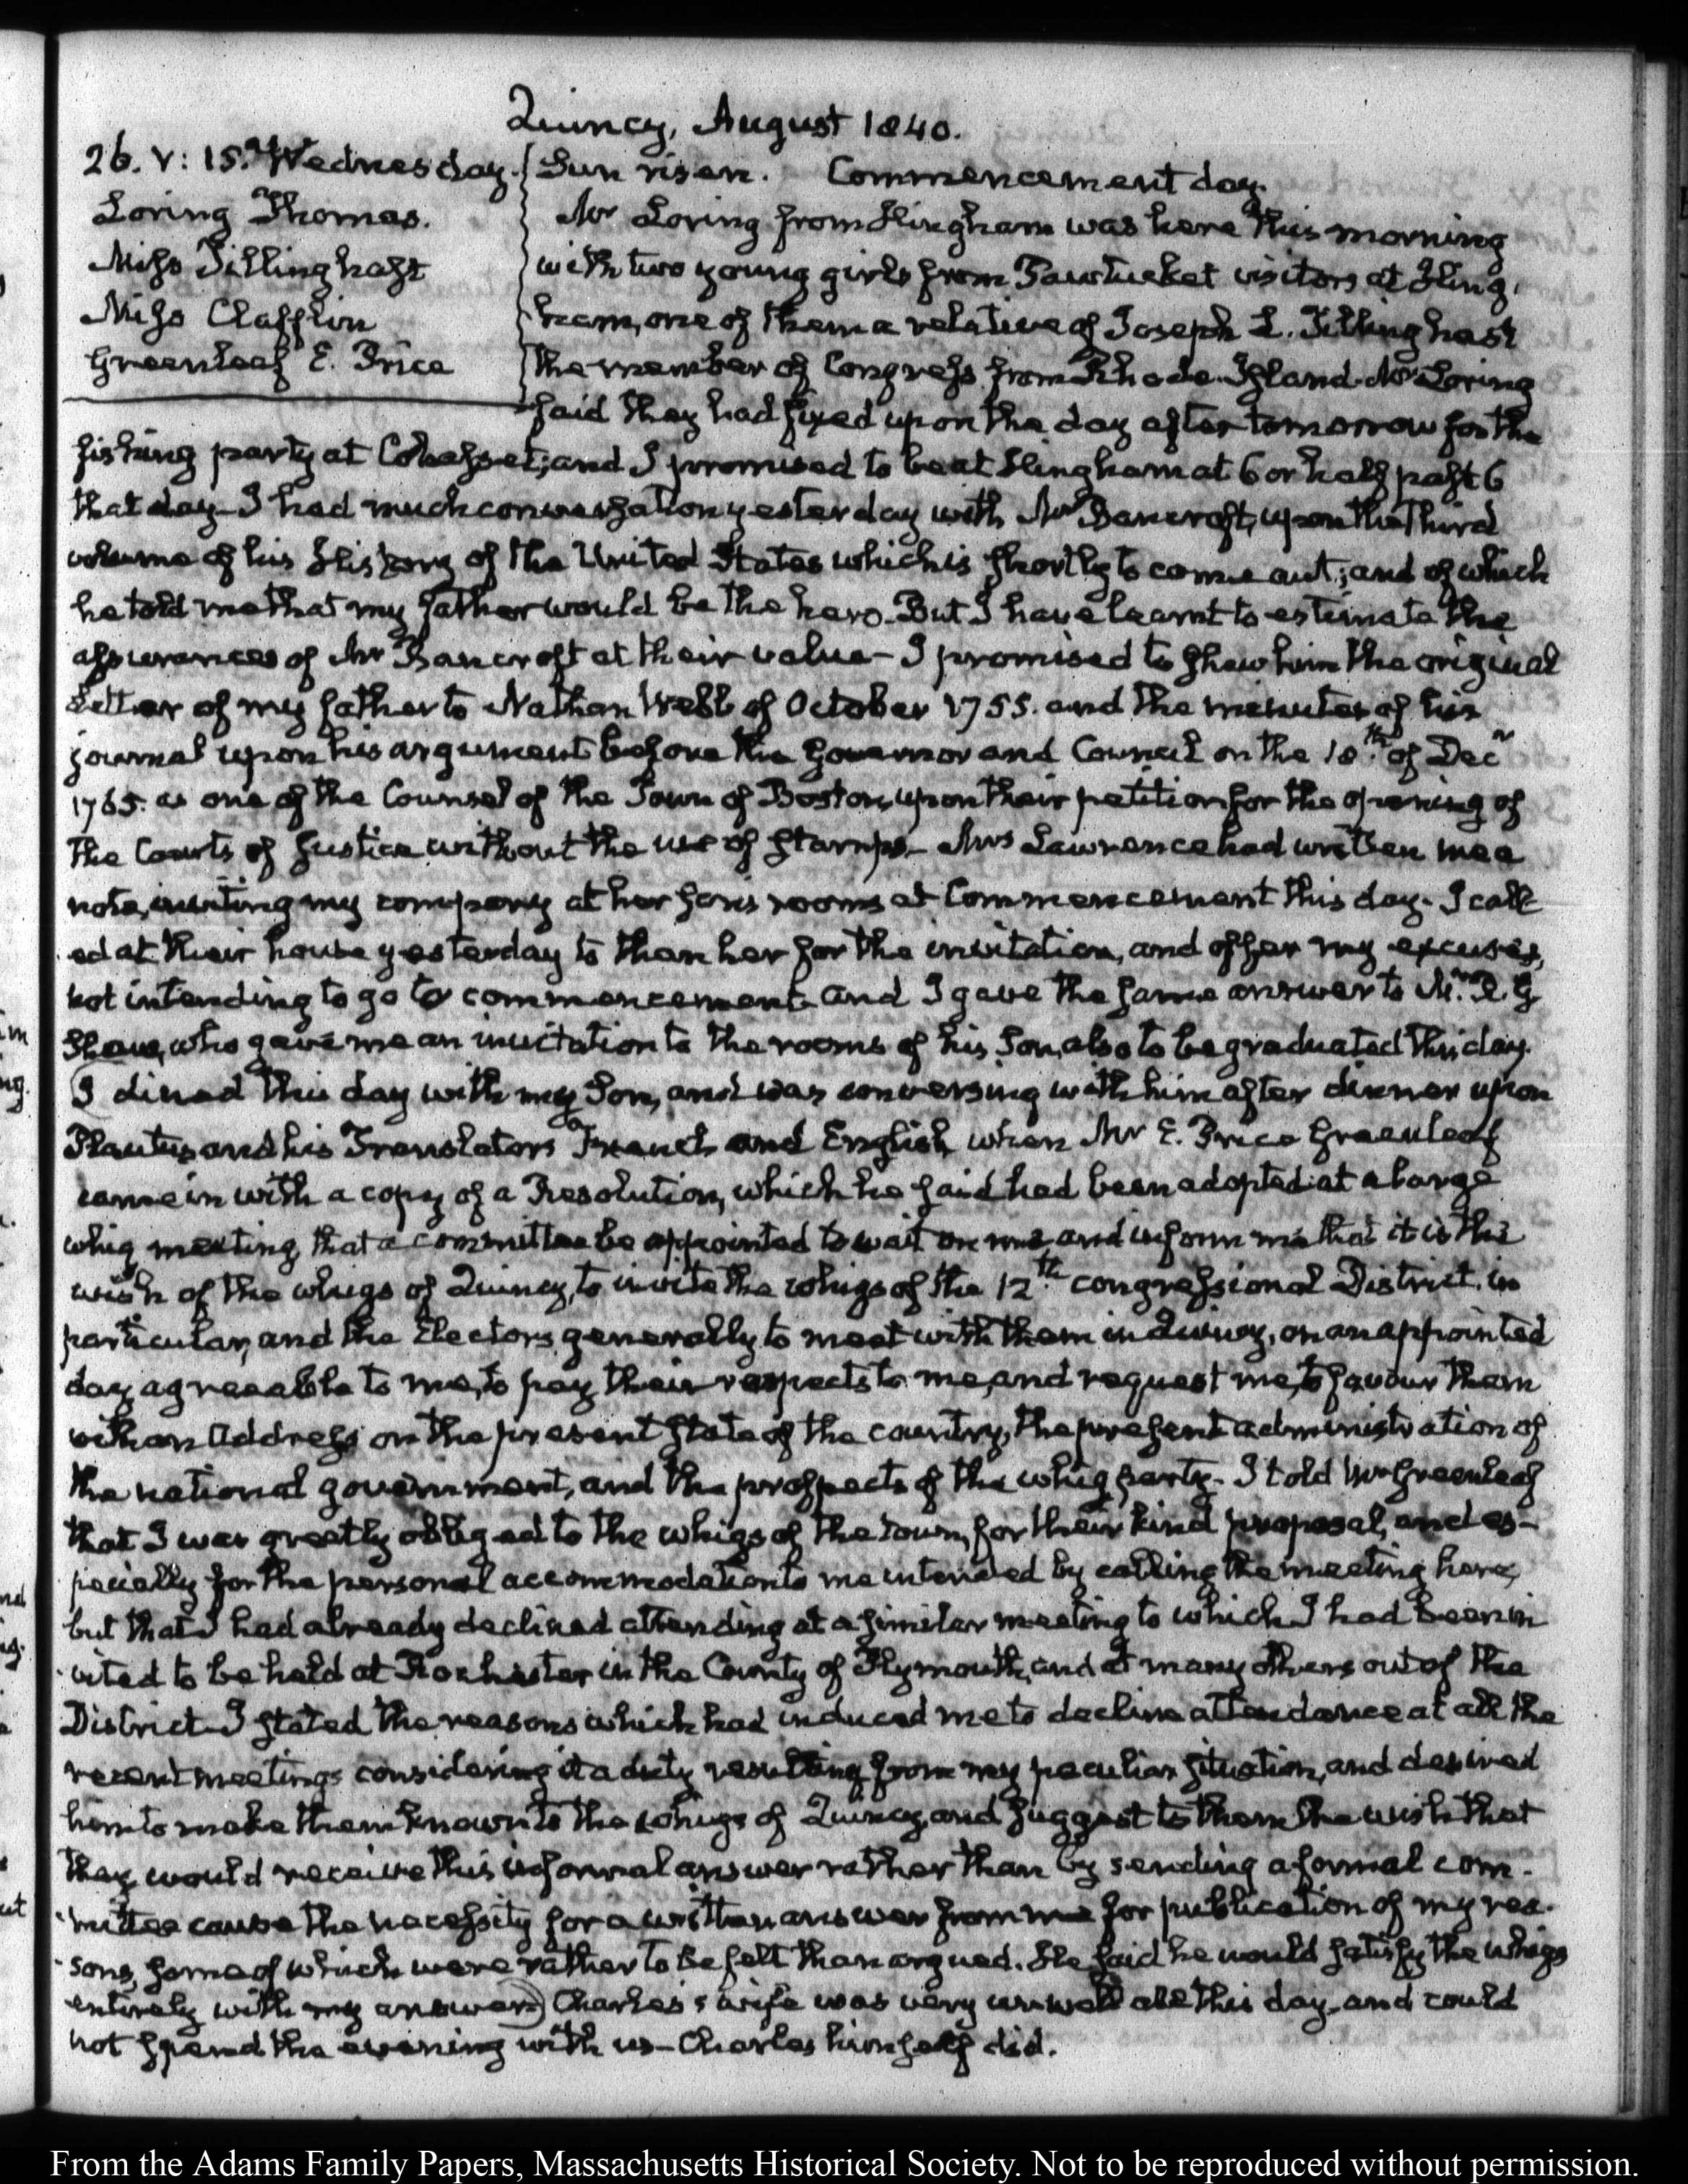 Quincy, August 1840.
26. V: 15. Wednesday.
Loring Thomas.
Miss Tillinghast
Miss Clafflin
Greenleaf E. Price
Sun risen. Commencement day.
Mr Loring from Hingham was here this morning
with two young girls from Pawtucket visitors at Hing-
ham, one of them a relative of Joseph L. Tillinghast
the member of Congress from Rhode-Island. Mr Loring
said they had fixed upon the day after tomorrow for the
fishing party at Cohasset; and I promised to be at Hingham at 6 or half past 6
that day- I had much conversation yesterday with Mr Bancroft, upon the third
volume of his History of the United States which is shortly to come out; and of which
he told me that my father would be the hero. But I have learnt to estimate the
assurances of Mr Bancroft at their value- I promised to shew him the original
Letter of my father to Nathan Webb of October 1755. and the minutes of his
journal upon his argument before the Governor and Council on the 18th. of Decr
1765. as one of the Counsel of the Town of Boston, upon their petition for the opening of
the Courts of Justice without the use of stamps- Mrs Lawrence had written me a
note, inviting my company at her son's rooms at Commencement this day- I call-
ed at their house yesterday to thank her for the invitation, and offer my excuses,
not intending to go to commencement- and I gave the same answer to Mr. R. G.
Shaw, who gave me an invitation to the rooms of his Son, also to be graduated this day.
I dined this day with my Son, and was conversing with him after dinner upon
Plautus and his Translators French and English when Mr E. Price Greenleaf
came in with a copy of a Resolution, which he said had been adopted at a large
whig meeting, that a committee be appointed to wait on me and inform me that it is the
wish of the whigs of Quincy, to invite the whigs of the 12th. congressional District. in
particular, and the Electors generally to meet with them in Quincy, on an appointed
day agreeable to me, to pay their respects to me, and request me, to favour them
with an Address on the present state of the country, the present administration of
the national government, and the prospects of the whig party- I told Mr Greenleaf
that I was greatly obliged to the whigs of the town, for their kind proposal, and es-
pecially for the personal accommodation to me intended by calling the meeting here,
but that I had already declined attending at a similar meeting to which I had been in-
vited to be held at Rochester in the County of Plymouth, and at many others out of the
District- I stated the reasons which had induced me to decline attendance at all the
recent meetings considering it a duty resulting from my peculiar situation, and desired
him to make them known to the whigs of Quincy, and suggest to them the wish that
they would receive this informal answer rather than by sending a formal com-
mittee cause the necessity for a written answer from me for publication of my rea-
sons, some of which were rather to be felt than argued. He said he would satisfy the whigs
entirely with my answer) Charles's wife was very unwell all this day, and could
not spend the evening with us- Charles himself did.
From the Adams Family Papers, Massachusetts Historical Society. Not to be reproduced without permission.